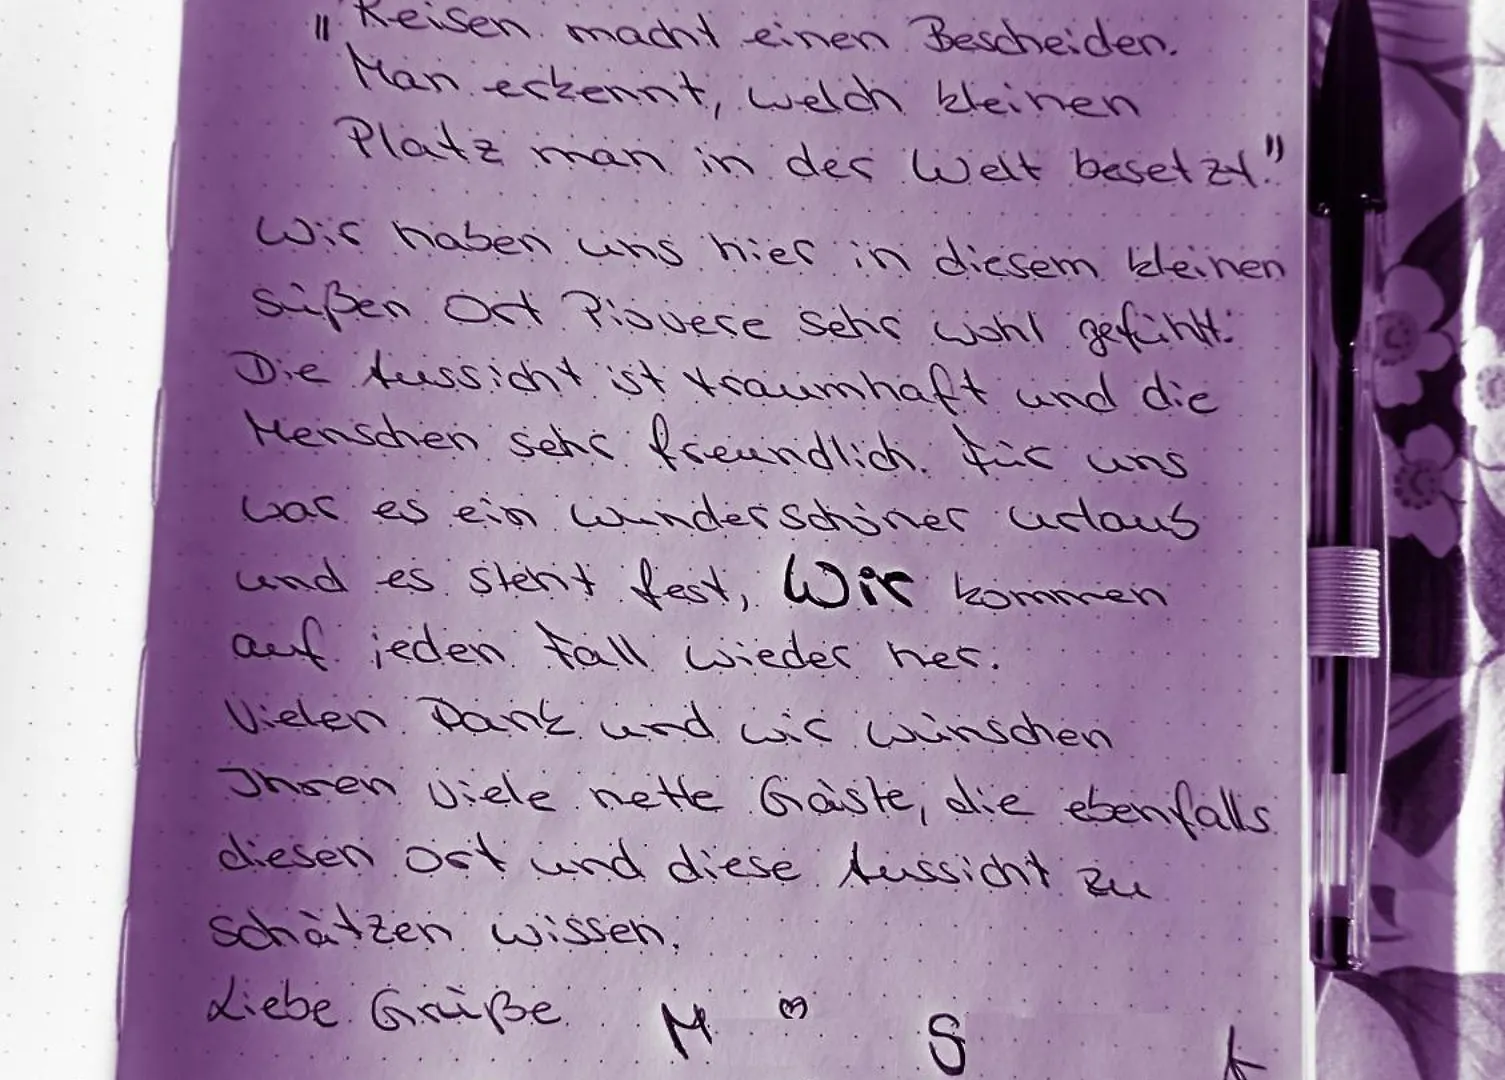 "Reisen macht einen Bescheiden.
Man erkennt, welch kleinen
Platz man in der Welt besetzt."
Wir haben uns hier in diesem kleinen
süßen Ort Piovere sehr wohl gefühlt.
Die Aussicht ist traumhaft und die
Menschen sehr freundlich. Für uns
war es ein wunderschöner Urlaub
und es steht fest, Wir kommen
auf jeden Fall wieder her.
Vielen Dank und wir wünschen
Ihnen viele nette Gäste, die ebenfalls
diesen Ort und diese Aussicht zu
schätzen wissen.
Liebe Grüße M ♡ S